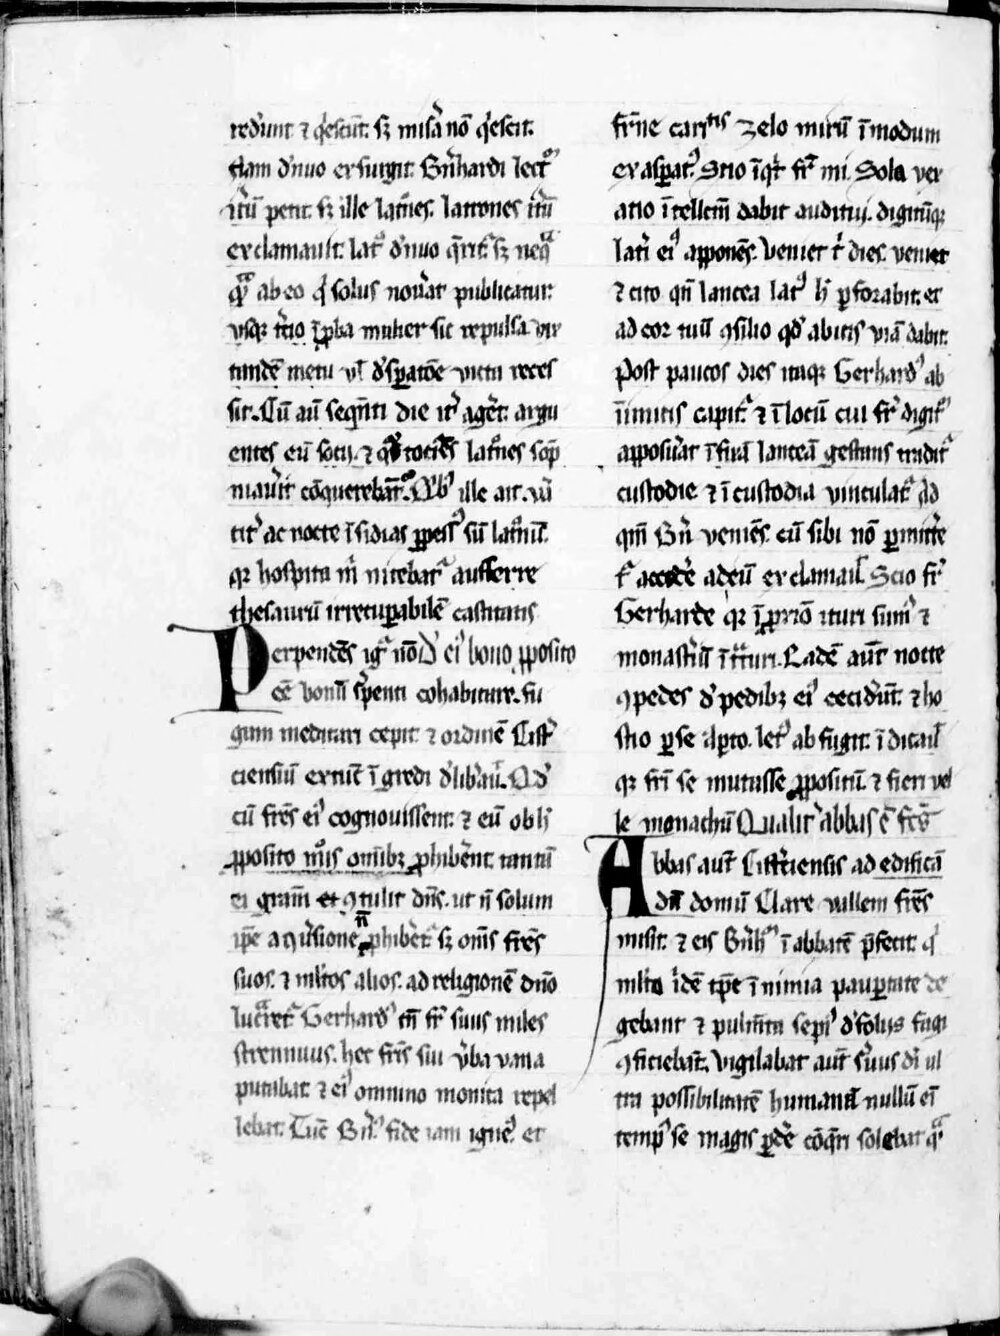 redeūt ⁊ q̇escūt. sꝫ misa᷑ nō q̇escit.
clam dn̄uo exsurgit. Bn̄hardi lectꝰ
itū petit. sꝫ ille latn̄es. latrones itū
exclamauit. latꝰ dn̄uo q̄rit᷑ sꝫ neqᵃ
qᵃ ab eo q̇ solus nou̾at publicatur.
vsqꝫ t̾cio īp̱ba mulier sic repulsa vix
tandē metu vl̾ desꝑatōe victa reces
sit. Cū au᷑ seqn̄ti die it᷑ aget. argu
entes eū socij. ⁊ qᵈ tociēs latn̄es sop̄
niau̾it cōquerebāt᷑. Qⁱbꝰ ille ait. v̄a
cit᷑ ac nocte īsidias ꝑpessꝰ sū latn̄ū.
qꝛ hospita m̄ nitebat᷑ aufferre
thesaurū irrecuꝑabilē castitatis
Perpendēs igᷓ nōᵈ eiꝰ bono ꝓposito
eē bonū s̾penti cohabitare. fu
gam meditari cepit ⁊ ordinē Cist᷑
ciensiū extūc īgredi dˀlib̾au᷑. Qᵈ
cū frēs eiꝰ cognouissent. ⁊ eū ob hͥ
ꝓposito mⁱs omībꝫ ꝓhibēnt tantū
ei gr̄am et ꝯtulit dn̄s. ut n̄ solum
ip̄e a ꝯu̾sione n̄ ꝓhibet᷑. sꝫ om̄s frēs
suos. ⁊ ml̾tos alios. ad religionē dn̄o
lucᵃret᷑ Gerhardꝰ tn̄ fr̄ suus miles
strennuus. hec frīs sui v̾ba vana
putabat. ⁊ eiꝰ omnino monita repel
lebat. Tūc Bn̄ꝰ fide iam igneꝰ. et
fr̄ne caritᵗⁱˢ zelo mirū īmodum
exasꝑatꝰ. Scio īqt fr̄ mi. Sola vex
atio ītellcm̄ dabit auditui. digitūqꝫ
lat̾i eiꝰ apponēs. veniet īt dies. veniet
⁊ cito qn̄ lancea latꝰ hͥ ꝑforabit. et
ad cor tuū ꝯsilio qᵈ abicis viā dabit.
Post paucos dies itaqꝫ Gerhardꝰ ab
inimicis capit᷑ ⁊ ī locū cui fr̄ digitū
apposu̾at īfixā lanceā gestans tradit᷑
custodie ⁊ ī custodia vinculat᷑ Ad
qm̄ Bn̄ veniēs. cū sibi nō ꝑmitte
t᷑ acced̾e ad eū exclamait̾ Scio fr̄
Gerharde qꝛ ī ꝓxiō ituri sum᷑ ⁊
monast̾iū īt᷑turi. Eadē aūt nocte
ꝯpedes dˀ pedibꝫ eiꝰ cecid̾ūt. ⁊ ho
stio ꝑ se aꝑto. letꝰ ab fugit. īdicait̾
qꝛ fr̄i se mutasse ꝓpositū ⁊ fieri vel
le monachū Qualit᷑ abbas ē frēs
Abbas aūt Cist̾ciensis ad edificā
dā domū Clare vallem frēs
misit. ⁊ eis Bn̄hᵐ ī abbatē p̄fecit. qⁱ
ml̾to īdē tp̄e ī nimia pauꝑtate de
gebant ⁊ pulm̄ta sepiꝰ dˀ folijs fagi
ꝯficiebāt. vigilabat aūt s̾uus di̾ ul
tra possibilitatē humanā nullū ei̾
tempꝰ se magis ꝑd̾e cōq̄ri solebat qᵃ